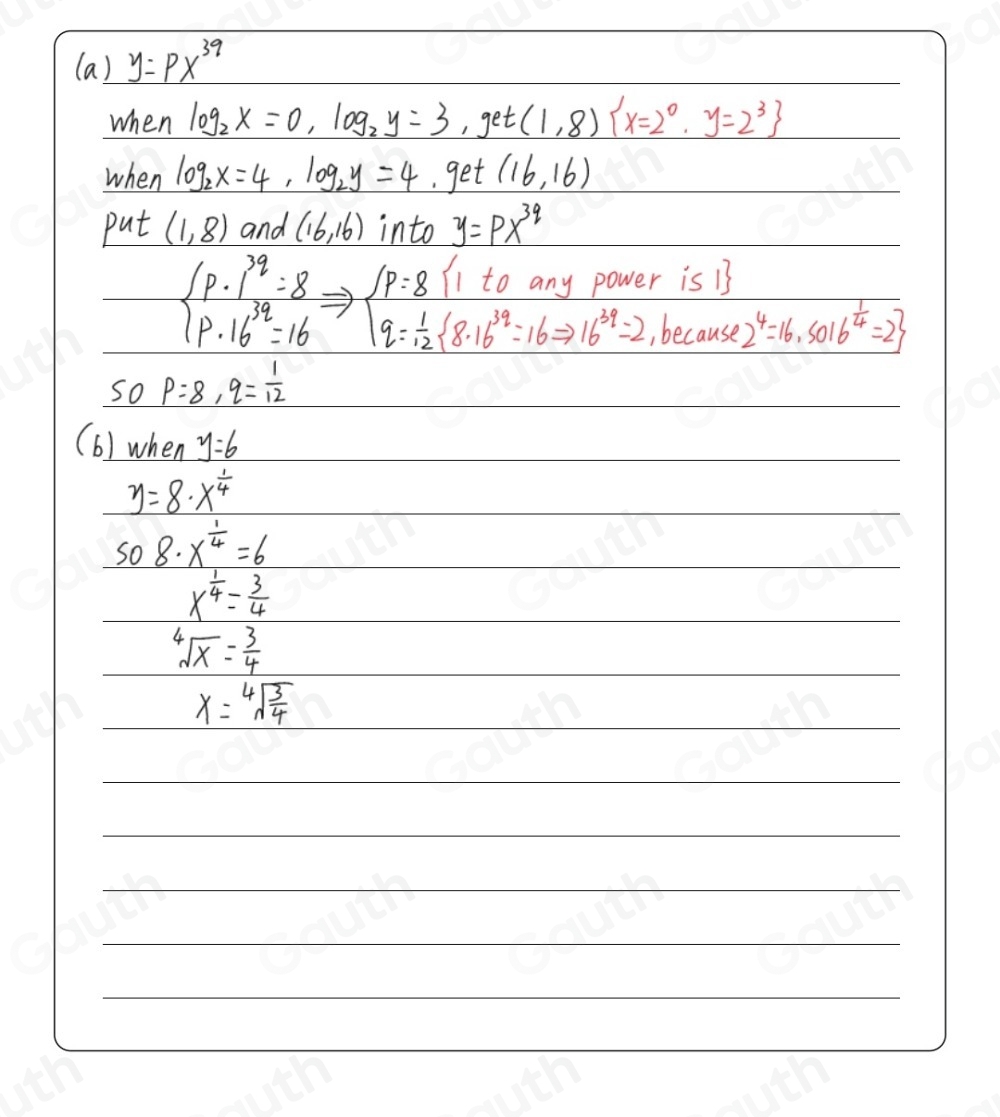 (a) y=px^3q
when log₂x=0, log₂y=3, get(1,8) {x=2⁰. y=2³}
when log₂x=4, log₂y=4. get (16,16)
put (1,8) and (16,16) into y=px^3q
{p·1^3q=8 ⇒ {p=8 {1 to any power is 1}
{p·16^3q=16 {q=1/12 {8·16^3q=16⇒16^3q=2, because 2⁴=16, so16^1/4=2}
so p=8, q=1/12
(b) when y=6
y=8·x^1/4
so 8·x^1/4=6
x^1/4=3/4
⁴√x=3/4
x=⁴√3/4
Gauth